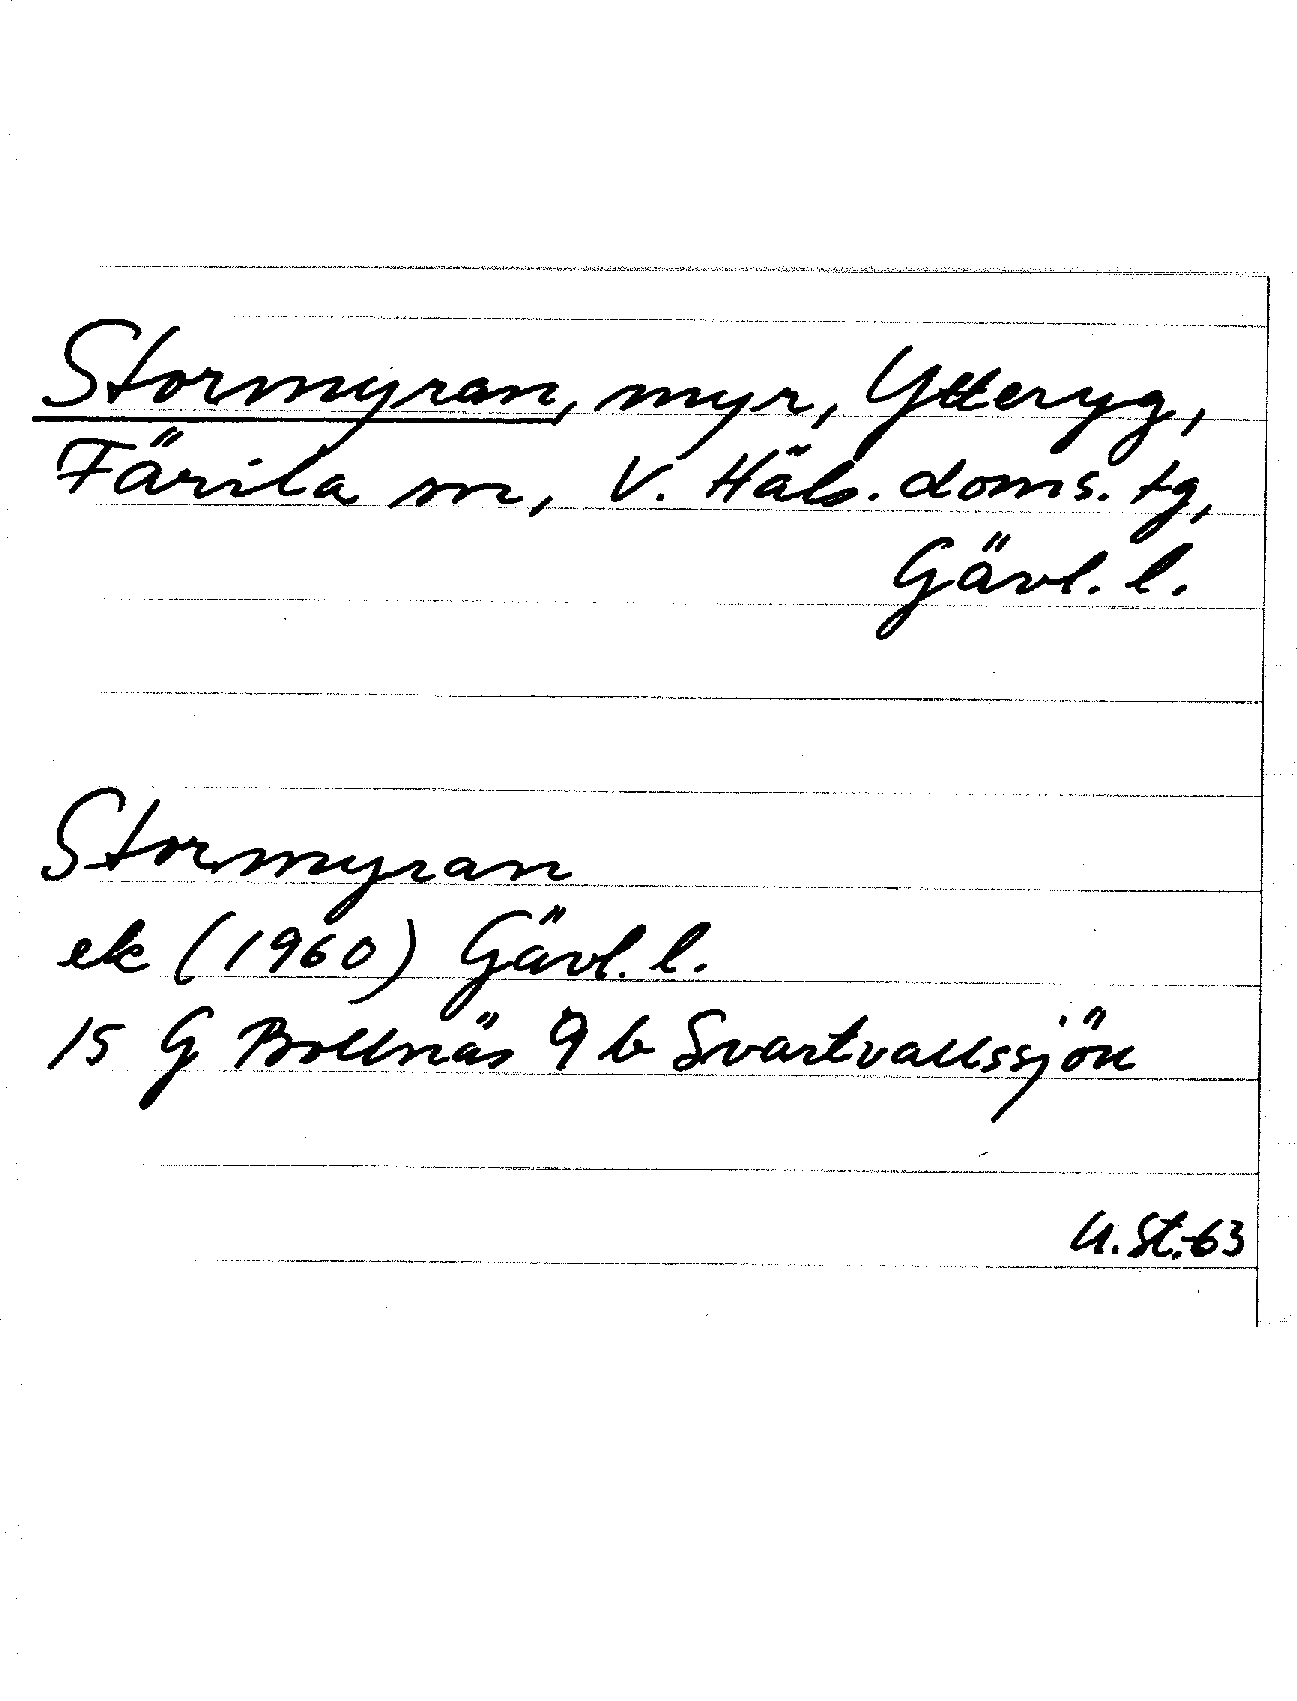 Stormyran, myr, Ytteryg,
Färila sn, V. Häls. doms. tg,
Gävl. l.
Stormyran
ek (1960) Gävl. l.
15 G Bollnäs 9 b Svartvallssjön
U. St. -63